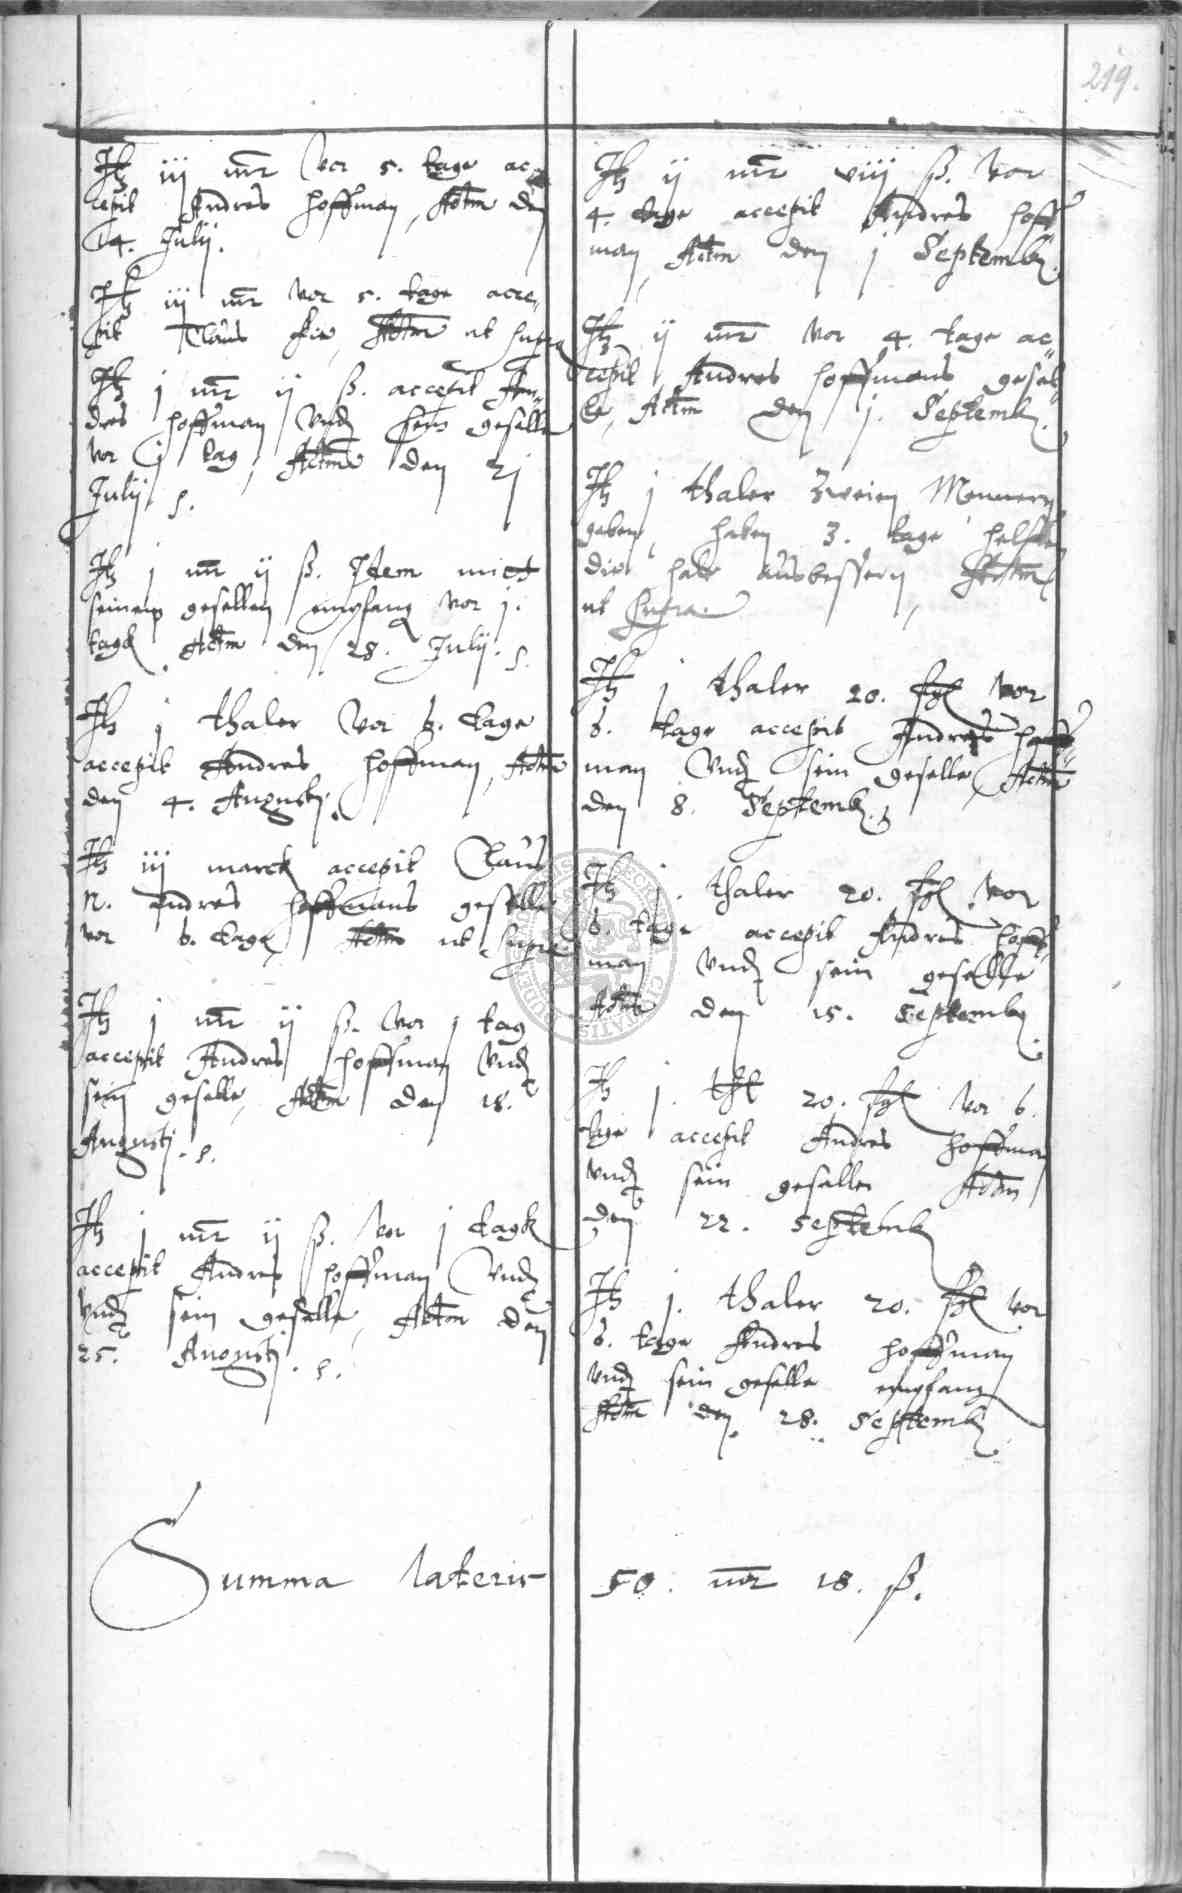 219.
Itz iij mr vor 5. tage ac-
cepit Andres Hoffman, Actm den
14. Julij.
Itz iij mr vor 5. tage acce-
pit Claus, Actm ut supra
Itz j mr ij ß. accepit An-
dres Hoffman vnd sein geselle
vor j tag, Actm den 21
Julij. s.
Itz j mr ij ß. Idem mitt
seinem gesellen empfang vor j.
tagk Actm den 28. Julij. s.
Itz j thaler vor 3. tage
accepit Andres Hoffman, Actm
den 4. Augustj.
Itz iij marck accepit Claus
N. Andres Hoffmans geselle
vor 6. tage, Actm ut supra
Itz j mr ij ß. vor j tag
accepit Andres Hoffman vnd
sein geselle, Actm den 18.
Augustj. s.
Itz j mr ij ß. vor j tagk
accepit Andres Hoffman vnd
vnd sein geselle, Actm den
25. Augustj. s.
Summa lateris 50. mr 18. ß.
Itz ij mr viij ß. vor
4. tage accepit Andres Hoff-
man, Actm den j Septemb.
Itz ij mr vor 4. tage ac-
cepit Andres Hoffmans gesel-
le, Actm den j. Septemb.
Itz j thaler Zweien Mennern
geben, haben 3. tage helffen
die ausbessern, Actm
ut supra.
Itz j thaler 20. ßl vor
6. tage accepit Andres Hoff-
man vnd sein geselle, Actm
den 8. Septemb.
Itz j. thaler 20. ßl vor
6. tage accepit Andres Hoff-
man vnd sein geselle
Actm den 15. Septemb.
Itz j. thl 20. ßl vor 6.
tage accepit Andres Hoffman
vnd sein gesellen Actm
den 22. Septemb
Itz j. thaler 20. ßl vor
6. tage Andres Hoffman
vnd sein geselle empfang
Actm den 28. Septemb